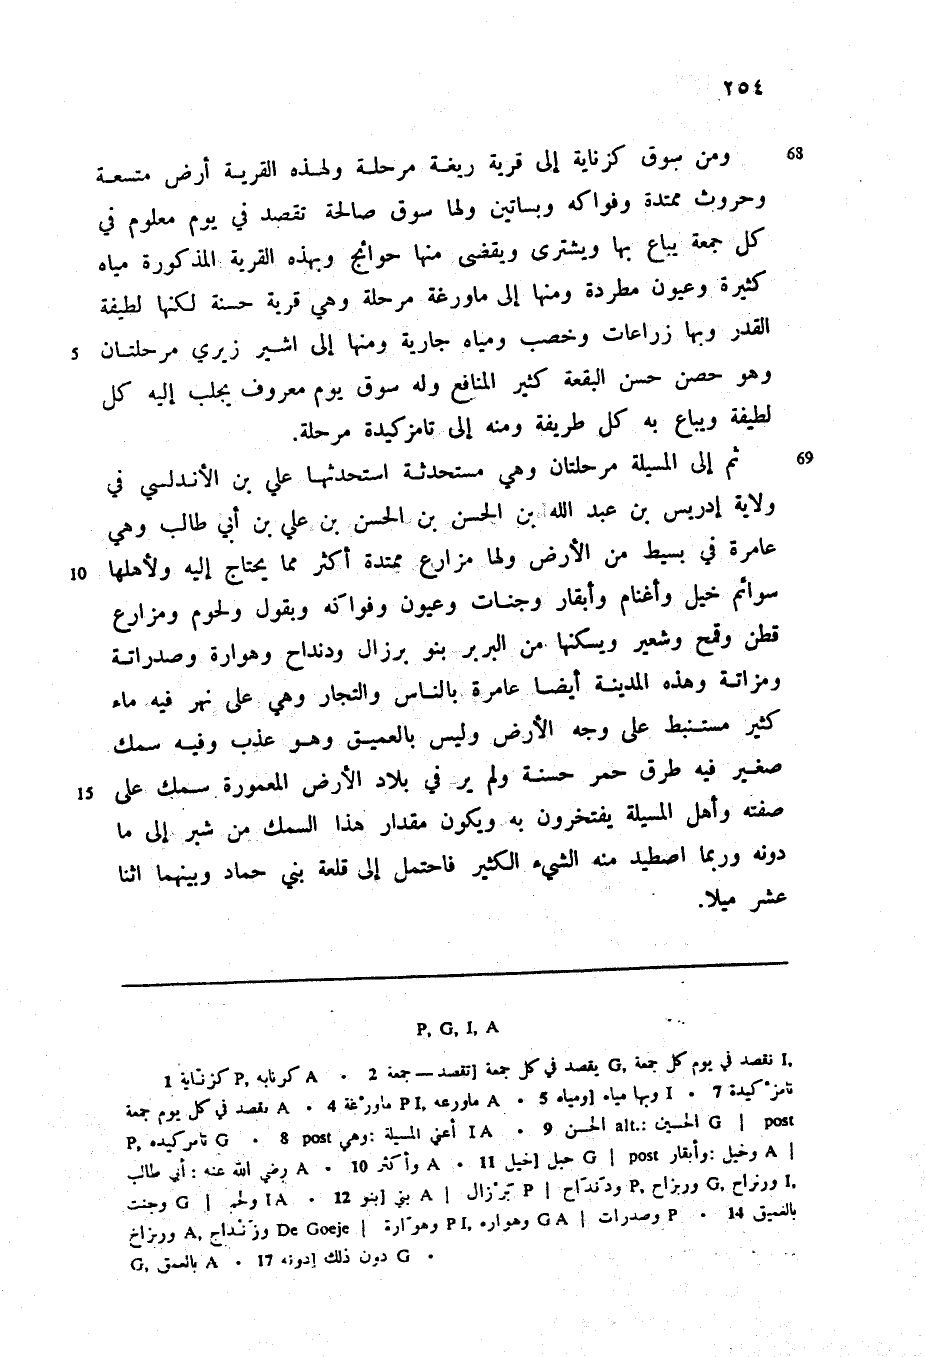 ٢٥٤
68 ومن سوق كزناية إلى قرية ريغـة مرحلـة ولهـذه القريـة أرض متسعـة
وحروث ممتدة وفواكه وبساتين ولها سوق صالحة تقصد في يوم معلوم في
كل جمعة يباع بها ويشترى ويقضى منها حوائج وبهذه القرية المذكورة مياه
كثيرة وعيون مطردة ومنها إلى ماورغة مرحلة وهي قرية حسنة لكنها لطيفة
القدر وبها زراعات وخصب ومياه جارية ومنها إلى اشـير زيري مرحلتـان 5
وهو حصن حسن البقعة كثير المنافع وله سوق يوم معروف يجلب إليه كل
لطيفة ويباع به كل طريفة ومنه إلى تامزكيدة مرحلة.
69 ثم إلى المسيلة مرحلتان وهي مستحدثـة استحدثهـا علي بن الأنـدلسي في
ولاية إدريس بن عبد الله بن الحسن بن الحسن بن علي بن أبي طالب وهي
عامرة في بسيط من الأرض ولها مزارع ممتدة أكثر مما يحتاج إليه ولأهلها 10
سوائم خيل وأغنام وأبقار وجنـات وعيون وفواكه وبقول ولحوم ومزارع
قطن وقمح وشعير ويسكنها من البربر بنو برزال ودنداح وهوارة وصدراتـة
ومزاتـة وهذه المدينـة أيضـا عامرة بالنـاس والتجار وهي على نهر فيه ماء
كثير مستـنبط على وجه الأرض وليس بالعميـق وهـو عذب وفيـه سمك
صغـير فيه طرق حمر حسنـة ولم ير في بلاد الأرض المعمورة سمك على 15
صفته وأهل المسيلة يفتخرون به ويكون مقدار هذا السمك من شبر إلى ما
دونه وربما اصطيد منه الشيء الكثير فاحتمل إلى قلعة بني حماد وبينهما اثنا
عشر ميلا.
P, G, I, A
1 كزنّاية P, كرنابه A • 2 تقصد — جمعة] يقصد في كل جمعة G, تقصد في يوم كل جمعة I,
يقصد في كل يوم جمعة A • 4 ماورْغة P I, ماورعه A • 5 ومياه] وبها مياه I • 7 تامزْكيدة
P, تامركيده G • 8 post وهي: أعني المسيلة I A • 9 الحسن alt.: الحسين G | post
أبي طالب: رضي الله عنه A • 10 أكثر] وأكثر A • 11 خيل] حبل G | post وأبقار: وخيل A |
وجنت G | ولحم I A • 12 بنو] بني A | بَرْزال P | ودنداح P, وورنزاح G, وورنزاح I,
وورنزاخ A, وزنْداج De Goeje | وهوّارة P I, وهواره G A | وصدرات P • 14 بالعميق
G, بالعمق A • 17 دونه] دون ذلك G •